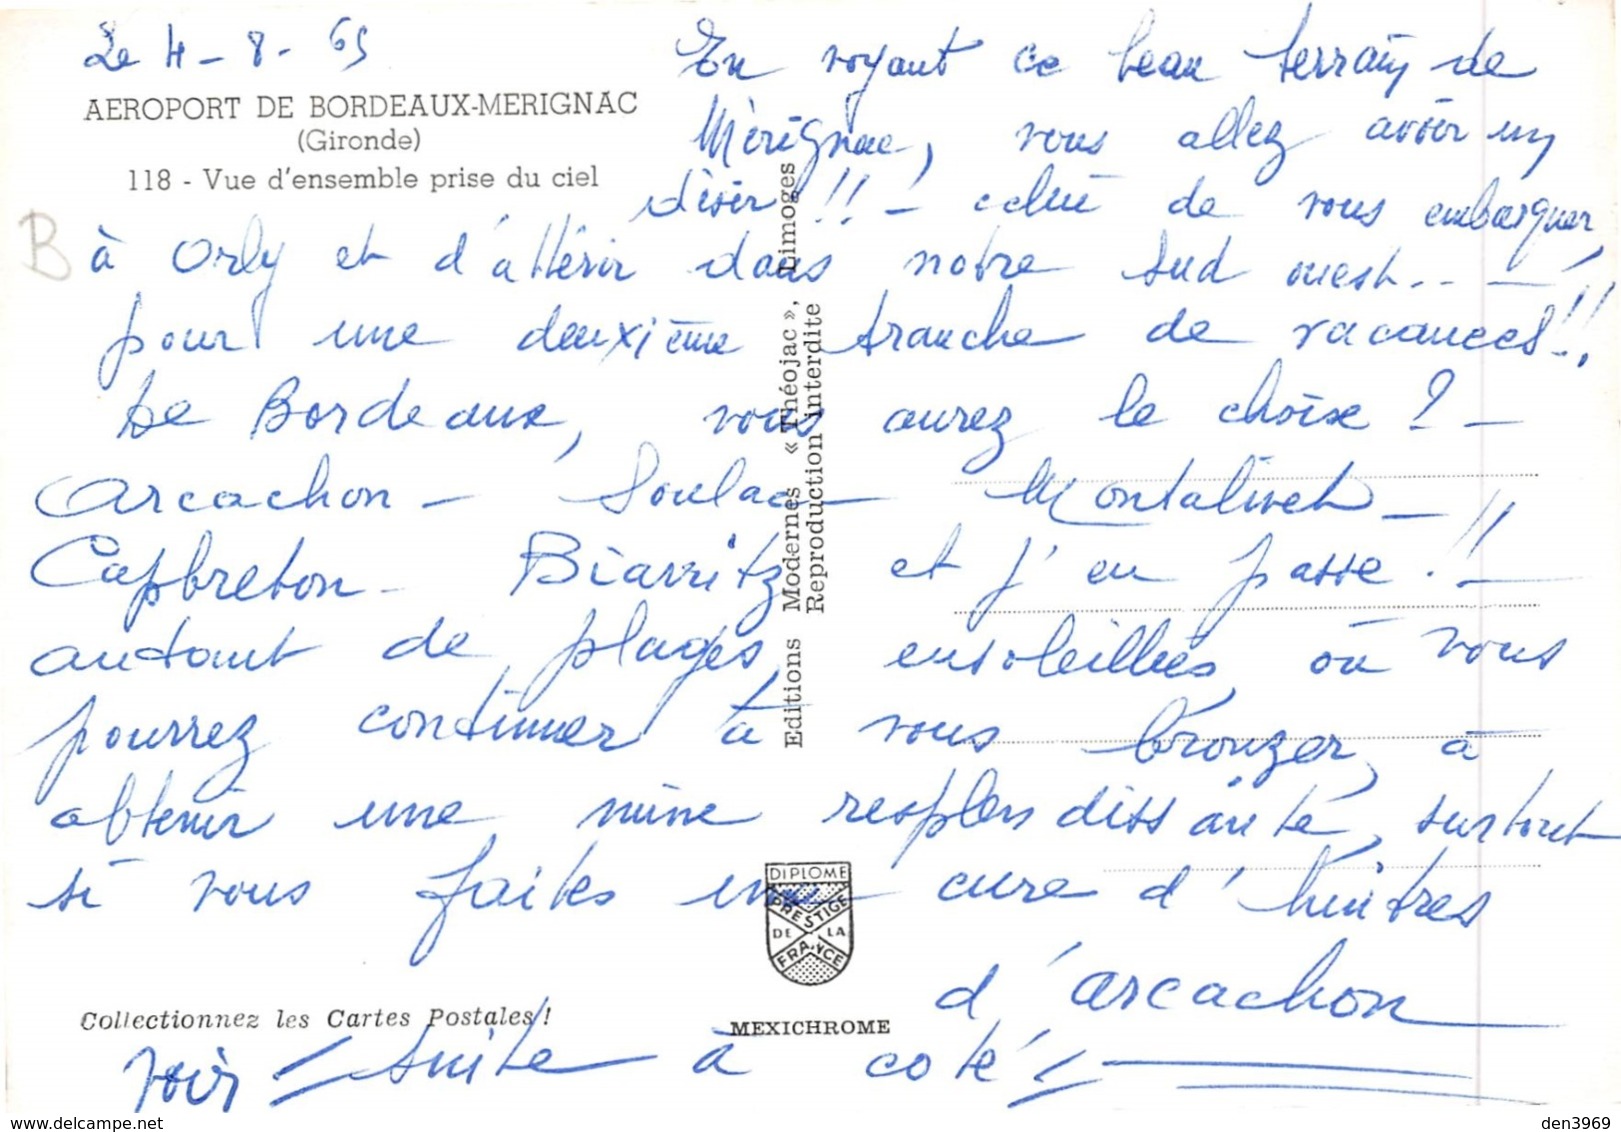 Le 4-8-65
AEROPORT DE BORDEAUX-MERIGNAC
(Gironde)
118 - Vue d'ensemble prise du ciel
B
En voyant ce beau terrain de
Mérignac, vous allez avoir un
désir !! - celui de vous embarquer,
à Orly et d'attérir dans notre Sud ouest.. -
pour une deuxième tranche de vacances!!
De Bordeaux, vous aurez le choix ? -
Arcachon - Soulac - Montalivet - !!
Capbreton - Biarritz et j'en passe ! -
autant de plages ensoleillées, où vous
pourrez continuer à vous bronzer, à
obtenir une mine resplendissante, surtout
si vous faites une cure d'huitres
d'arcachon
voir suite à coté !
Editions Modernes « Théojac », Limoges
Reproduction interdite
DIPLOME
PRESTIGE
DE LA
FRANCE
Collectionnez les Cartes Postales !
MEXICHROME
den3969